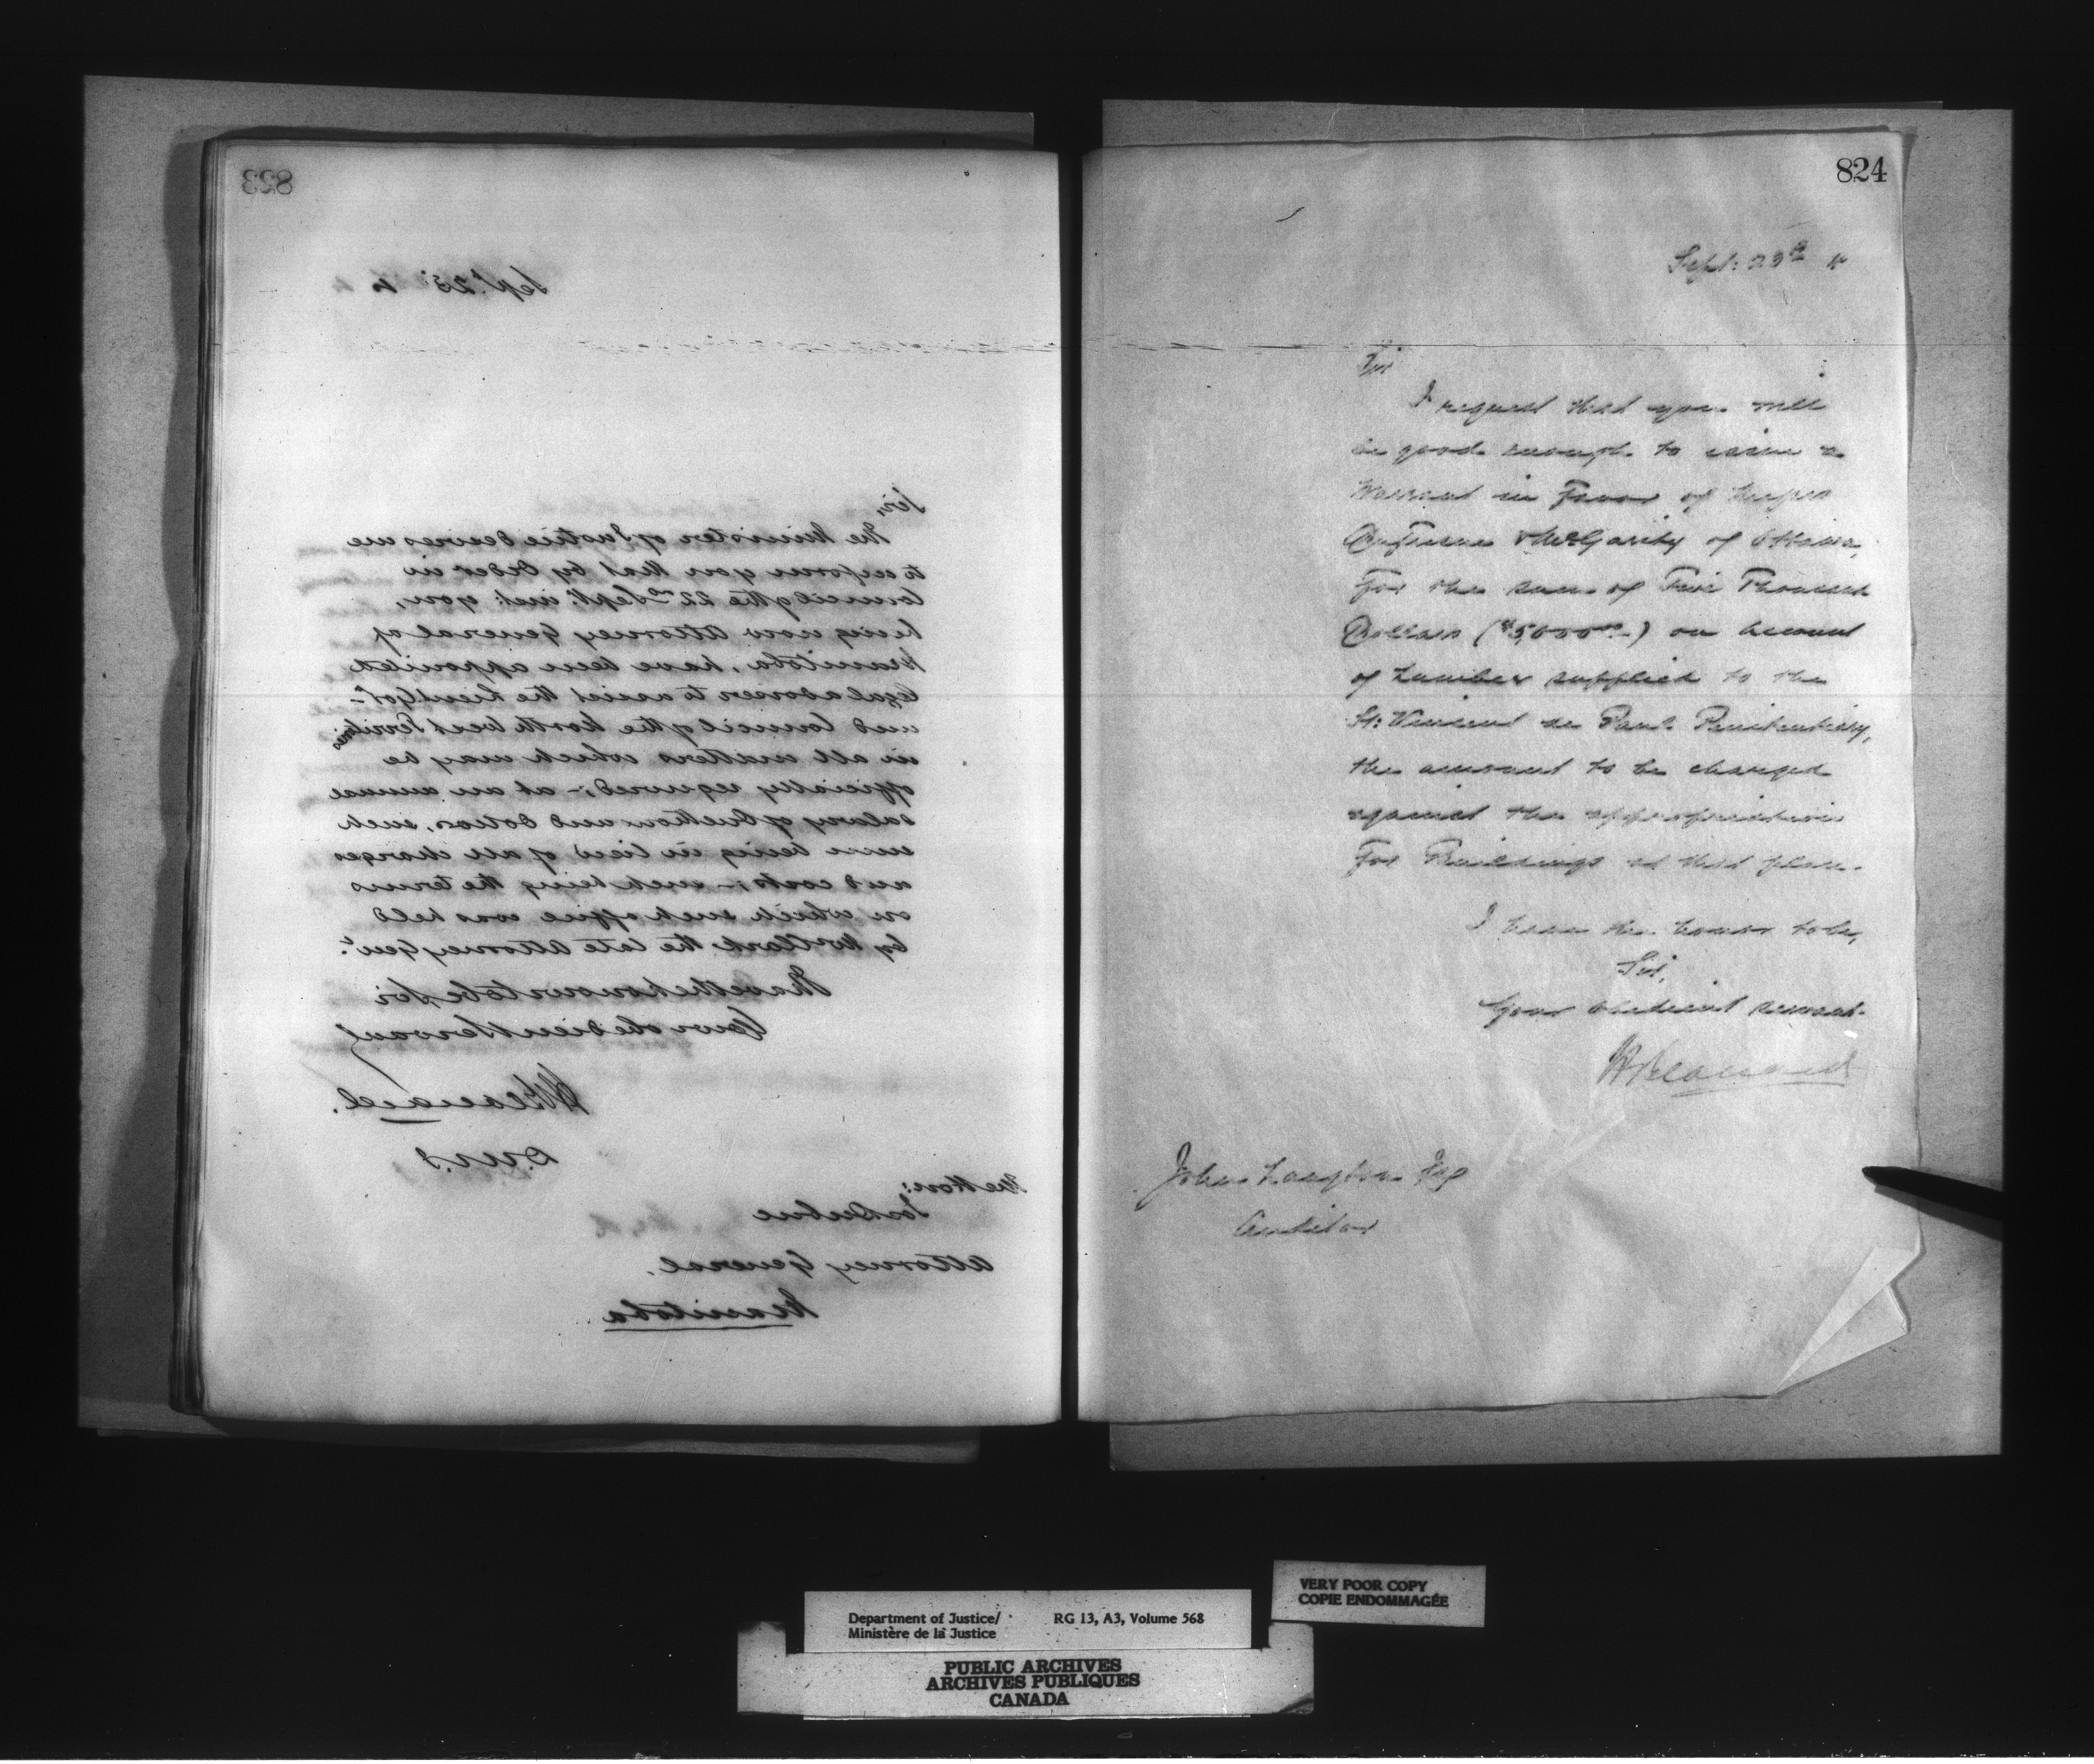 823
Sept. 23 4
Sir,
The Minister of Justice desires me
to inform you that by Order in
Council of the 22nd Sept. inst: you,
being now Attorney General of
Manitoba, have been appointed
legal adviser to assist the Lieut Govr
and Council of the North West Territories
in all matters which may be
officially required; - at an annual
salary of dollars, such
sum being in lieu of all charges
and costs; - such being the terms
on which such office was held
by Mr Clark the late Attorney Genl.
I have the honour to be Sir
Your obedient Servant
H Bernard.
D.M.J
The Hon:
Jos Dubuc
Attorney General.
Manitoba
824
Sept: 23d 4
Sir
I request that you will
be good enough to issue a
Warrant in Favor of Messrs
McGarity of Ottawa,
For the sum of Five Thousand
Dollars ($5000.00) on account
of Lumber supplied to the
St: Vincent de Paul Penitentiary,
the amount to be charged
against the appropriation
For Buildings at that place.
I have the honor to be,
Sir,
Your obedient servant.
H Bernard
John Langton Esq
Auditor
Department of Justice/
Ministère de la Justice
RG 13, A3, Volume 568
VERY POOR COPY
COPIE ENDOMMAGÉE
PUBLIC ARCHIVES
ARCHIVES PUBLIQUES
CANADA